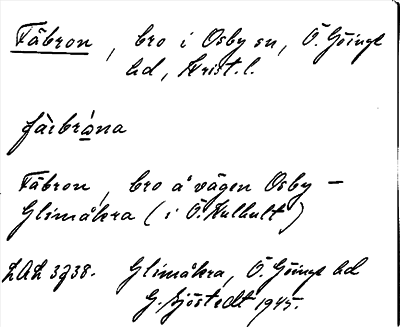 Fäbron, bro i Osby sn, Ö. Göinge
hd, Krist. l.
fàrbrána
Fäbron, bro å vägen Osby –
Glimåkra (i Ö. Hulbult)
LAL 3738. Glimåkra, Ö. Göinge hd
G. Sjöstedt 1945.